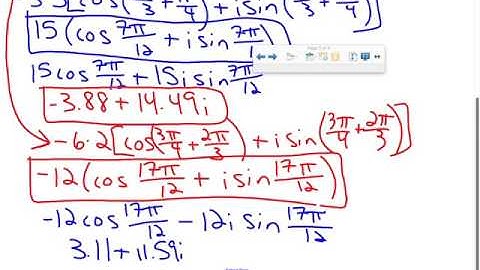 [cos(π/3 + π/4) + i sin(π/3 + π/4)]
15(cos 7π/12 + i sin 7π/12)
15 cos 7π/12 + 15i sin 7π/12
-3.88 + 14.49i
-6·2[cos(3π/4 + 2π/3) + i sin(3π/4 + 2π/3)]
-12(cos 17π/12 + i sin 17π/12)
-12 cos 17π/12 - 12i sin 17π/12
3.11 + 11.59i